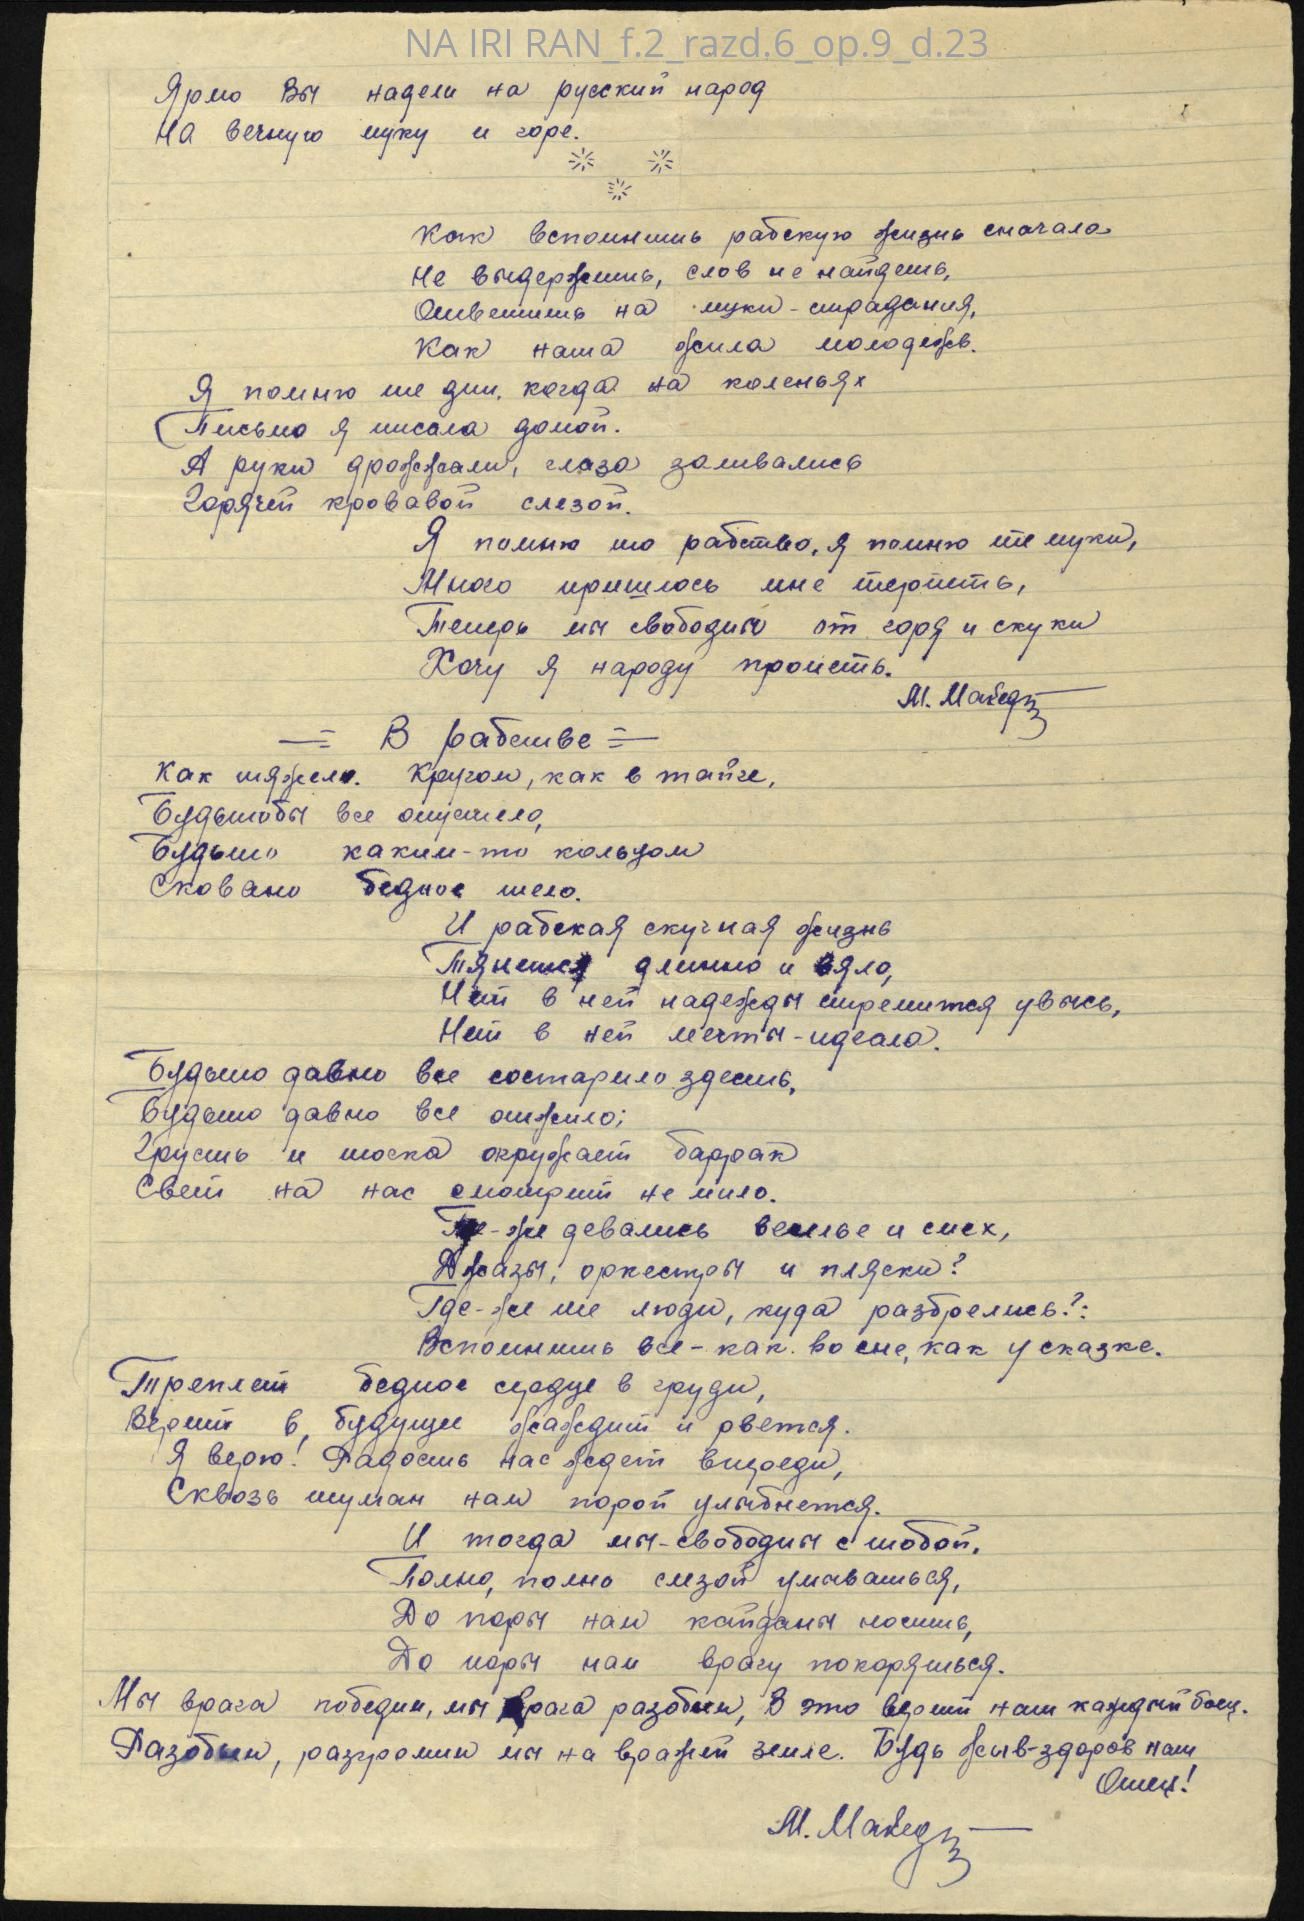 NA IRI RAN_f.2_razd.6_op.9_d.23
Ярмо Вы надели на русский народ
На вечную муку и горе.
* *
*
Как вспомнишь рабскую жизнь сначала
Не выдержишь, слов не найдешь,
Ответишь на муки-страдания,
Как наша жила молодежь.
Я помню те дни, когда на коленьях
Письмо я писала домой.
А руки дрожжали, глаза заливались
Горячей кровавой слезой.
Я помню то рабство, я помню те муки,
Много пришлось мне терпеть,
Теперь мы свободны от горя и скуки
Хочу я народу пропеть.
М. Макед
= В рабстве =
Как тяжело. Кругом, как в тайге,
Будьтобы все опустело,
Будьто каким-то кольцом
Сковано бедное тело.
И рабская скучная жизнь
Тянется длинно и вяло,
Нет в ней надежды стремится увысь,
Нет в ней мечты-идеала.
Будьто давно все состарило здесь,
Будьто давно все отжило;
Грусть и тоска окружает баррак
Свет на нас смотрит не мило.
Где-же девались веселье и смех,
Джазы, оркестры и пляски?
Где-же те люди, куда разбрелись?:
Вспомнишь все-как во сне, как у сказке.
Треплет бедное сердце в груди,
Верит в будущее жаждит и рвется.
Я верю! Радость нас ждет впереди,
Сквозь туман нам порой улыбнется.
И тогда мы-свободны с тобой,
Полно, полно слезой умываться,
До поры нам кайданы носить,
До поры нам врагу покоряться.
Мы врага победим, мы врага разобьем, В это верит наш каждый боец.
Разобьем, разгромим мы на вражей земле. Будь жыв-здоров наш
Отец!
М. Макед